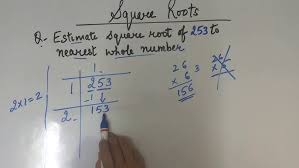 Square Roots
Q- Estimate square root of 253 to
nearest whole number
1
2x1=2
1 253
-1↓
2 153
26
x 6
156